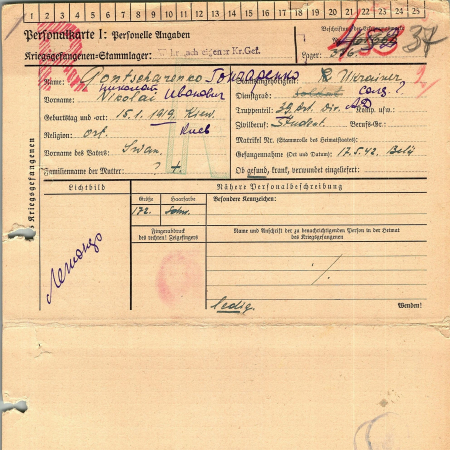 1 2 3 4 5 6 7 8 9 10 11 12 13 14 15 16 17 18 19 20 21 22 23 24 25
Personalkarte I: Personelle Angaben
37
Kriegsgefangenen-Stammlager:
Lager:
Name: Gontscharenko Гончаренко
Staatsangehörigkeit: Ukrainer
николай Иванович
Vorname: Nikolai
Dienstgrad: Soldat солд ?
Geburtstag und -ort: 15.1.1919, Kiew
Truppenteil: Art. Div.
Киев
Religion: ort.
Zivilberuf: Student. Berufs-Gr.:
Matrikel Nr. (Stammrolle des Heimatstaates):
Vorname des Vaters: Iwan.
Gefangennahme (Ort und Datum): 17.5.42.
Familienname der Mutter: ? +
Ob gesund, krank, verwundet eingeliefert:
des Kriegsgefangenen
Lichtbild
Nähere Personalbeschreibung
Größe
Haarfarbe
Besondere Kennzeichen:
172.
Fingerabdruck
des rechten! Zeigefingers
Name und Anschrift der zu benachrichtigenden Person in der Heimat
des Kriegsgefangenen
ledig.
Wenden!